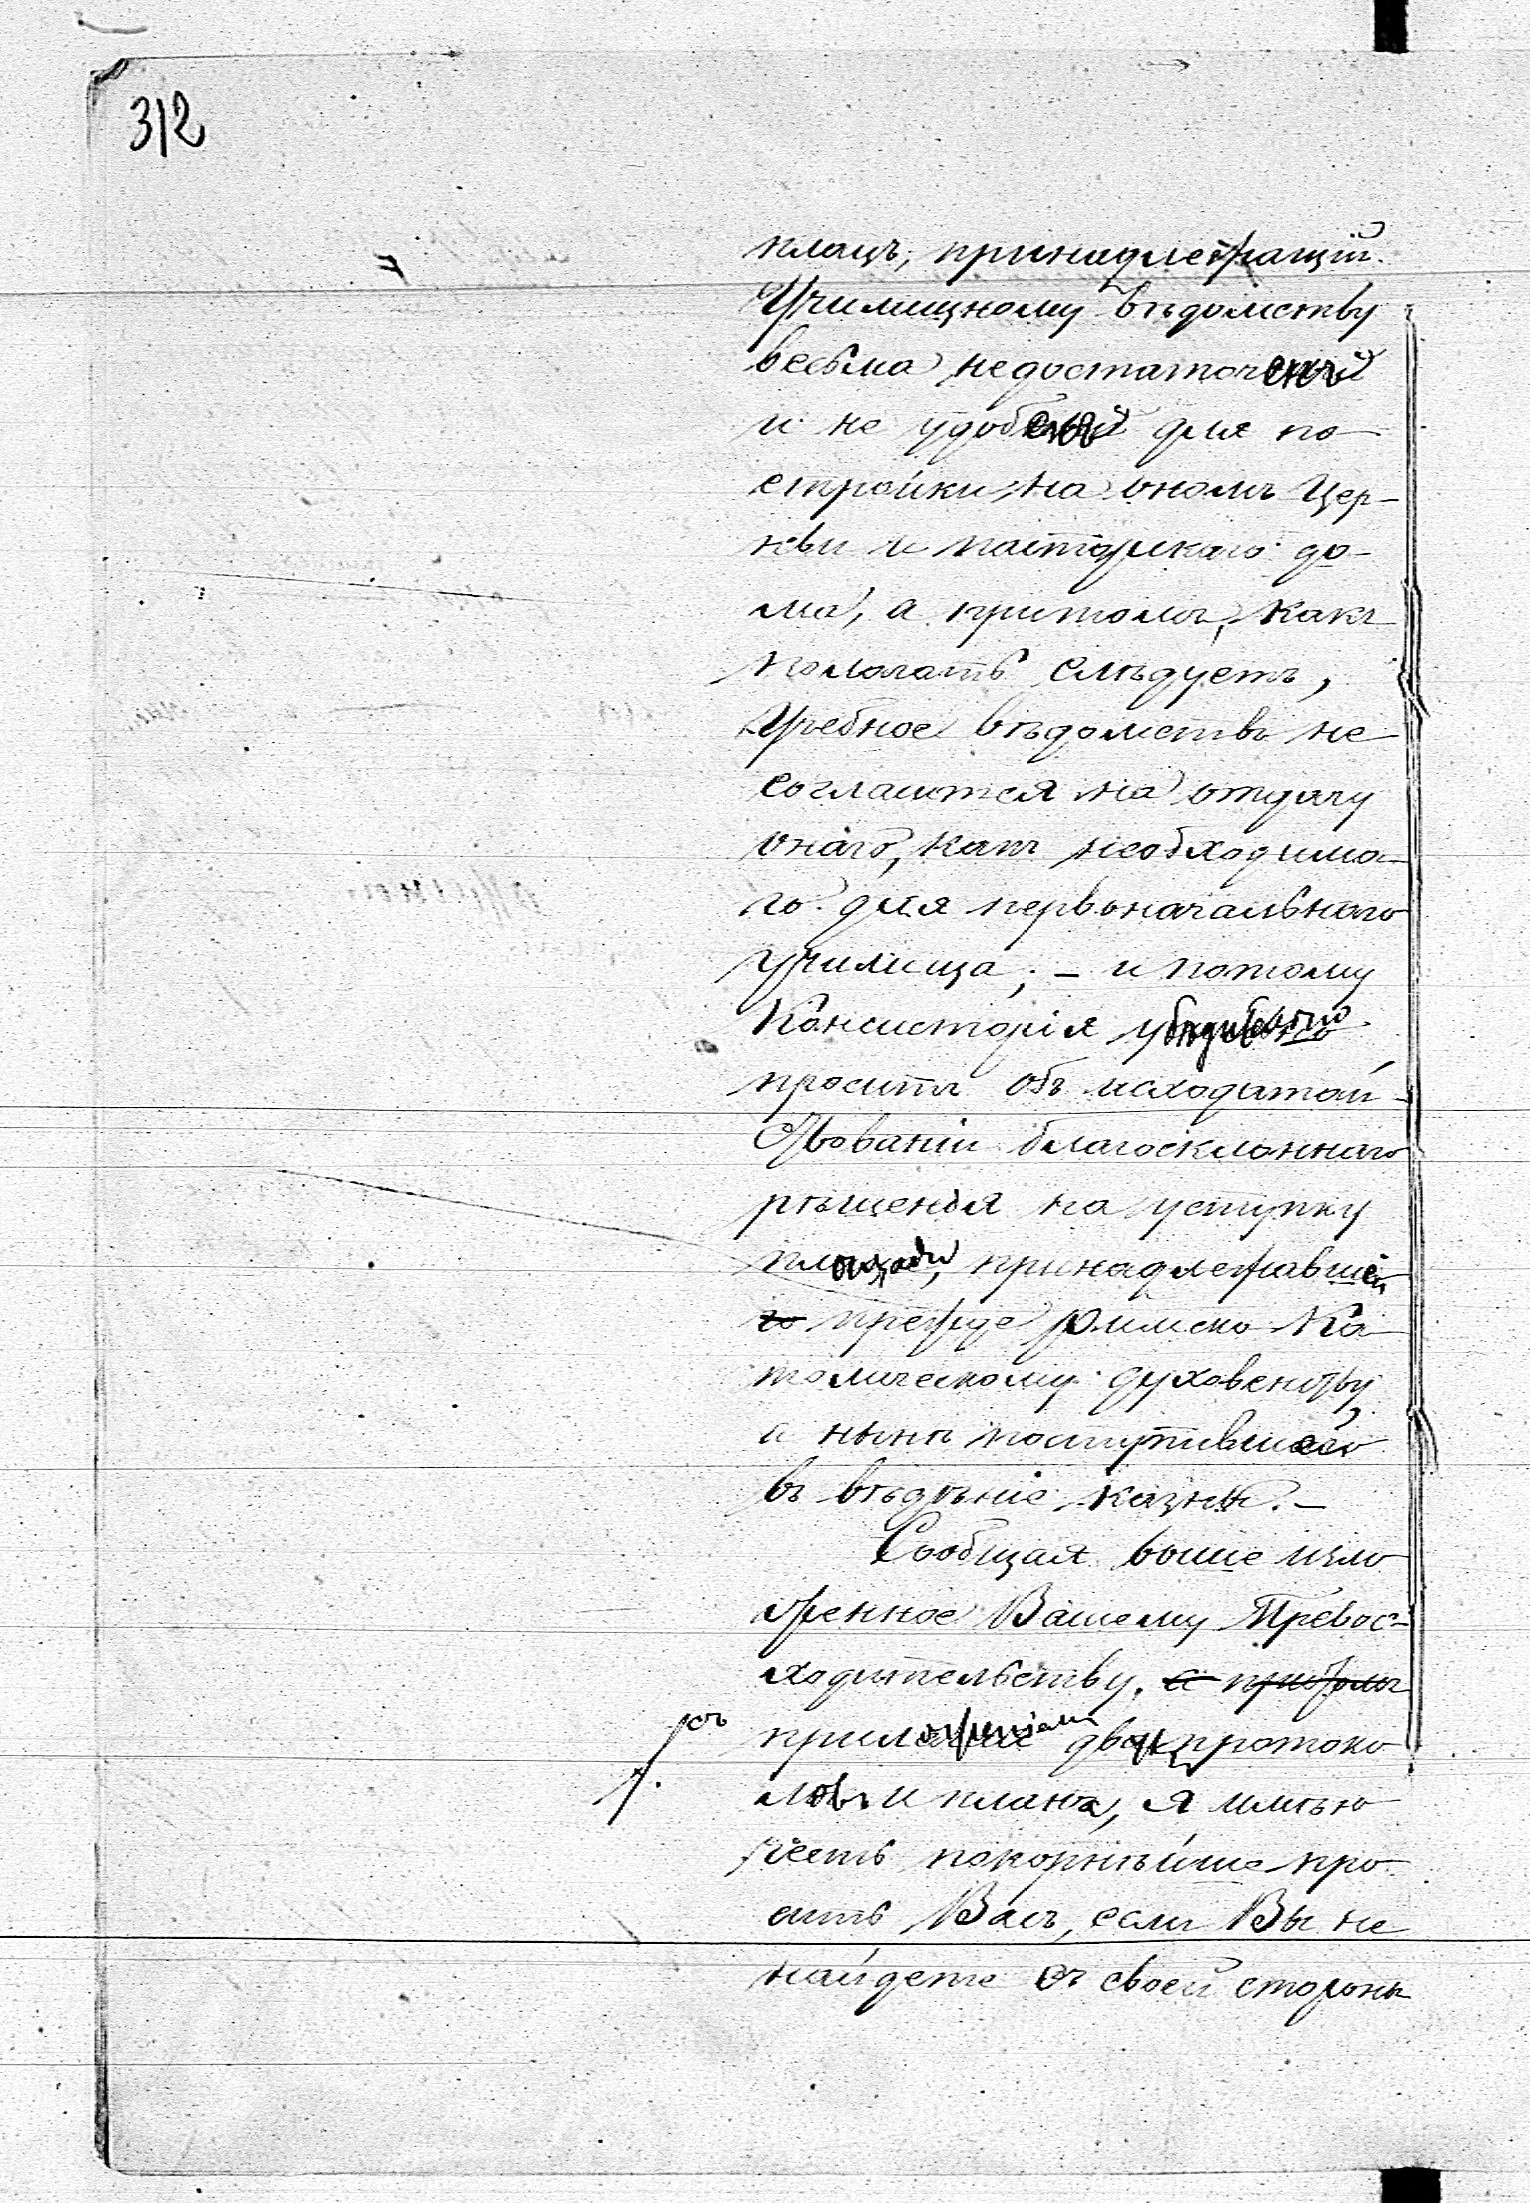 312
плацъ, принадлежащій
Училищному вѣдомству
весьма недостаточенъ
и не удобенъ для по
стройки на ономъ Цер-
кви и пасторскаго до-
ма, а притомъ, какъ
пологать слѣдуетъ,
Учебное вѣдомство не
согласится на отдачу
онаго, какъ необходима-
го для первоначальнаго
училища; – и потому
Консисторія убѣдительно
проситъ объ исходатай-
ствованіи благосклоннаго
рѣшенія на уступку
площади, принадлежавшей
го прежде Римско Ка
толическому духовенству
а нынѣ поступившей
въ вѣдѣніе казны. –
Сообщая выше изло
женное Вашему Превос-
ходительству, съ
приложеніемъ двухъ протоко
ловъ и плана, я имѣю
честь покорнѣйше про
сить Васъ, если Вы не
найдете съ своей стороны